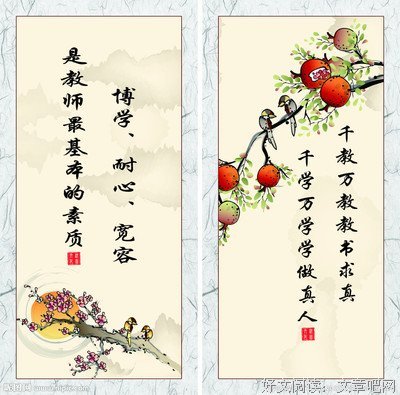 博学、耐心、宽容
是教师最基本的素质
千教万教教书求真
千学万学学做真人
好文阅读：文章吧网